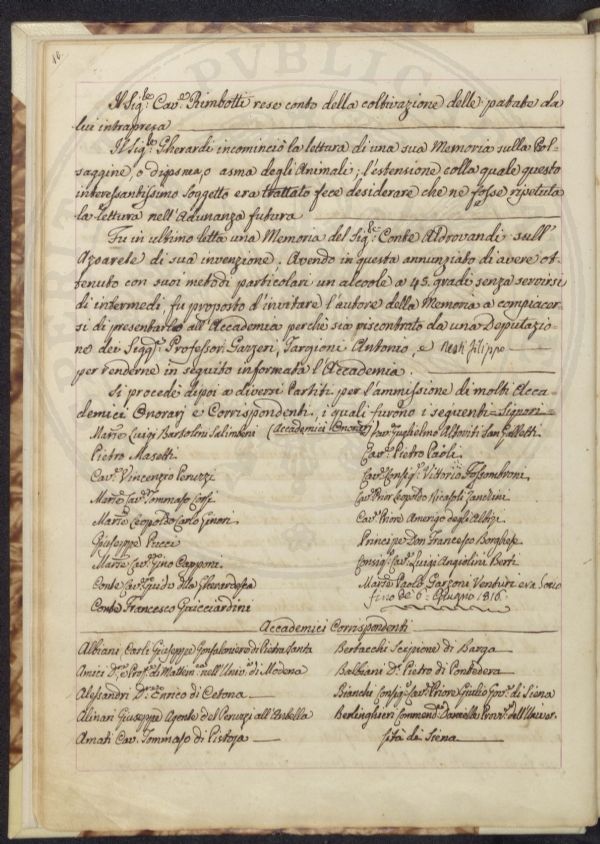 18.
Il Sig.re Cav.re Rimbotti rese conto della coltivazione delle patate da
lui intrapresa
Il Sig.re Gherardi incominciò la lettura di una sua Memoria sulla Bol-
saggine, o dipsma, o asma degli Animali; l'estensione colla quale questo
interessantissimo soggetto era trattato fece desiderare che ne fosse ripetuta
la lettura nell'Adunanza futura
Fu in ultimo letta una Memoria del Sig.re Conte Aldrovandi sull'
Areometro di sua invenzione; Avendo in questa annunziato di avere ot-
tenuto con suoi metodi particolari un alcoole a 45. gradi senza servirsi
di intermedi, fu proposto d'invitare l'autore della Memoria a compiacer-
si di presentarlo all'Accademia perchè sia riscontrato da una Deputazio-
ne dei Sigg.ri Professori Gazzeri, Targioni Antonio, e Nesti Filippo
per renderne in seguito informata l'Accademia.
Si procedè dipoi a diversi Partiti per l'ammissione di molti Acca-
demici Onorarj e Corrispondenti, i quali furono i seguenti = Signori =
(Accademici Onorarj)
Mar.se Luigi Bartolini Salimbeni
Pietro Masetti
Cav.re Vincenzio Peruzzi
Mar.se Cav.re Tommaso Corsi
Mar.se Leopoldo Carlo Ginori
Giuseppe Pucci
Mar.se Cav.re Gino Capponi
Conte Cav.re Guido della Gherardesca
Conte Francesco Guicciardini
Cav.re Guglielmo Altoviti Sangalletti
Cav.re Pietro Paoli
Cav.re Consig.re Vittorio Fossombroni
Cav.re Prior Leopoldo Ricasoli Zanchini
Cav.re Priore Amerigo degli Albizi
Principe Don Francesco Borghese
Consig.re Cav.re Luigi Angiolini Berti
Mar.se Paolo Garzoni Venturi era Socio
fino de' 6. Giugno 1816.
Accademici Corrispondenti
Albiani Carli Giuseppe Gonfaloniere di Pietra Santa
Amici D.re e Prof.re di Matem.ca nell'Univ.tà di Modena
Alessandri D.re Enrico di Cetona
Alinari Giuseppe Agente del Peruzzi all'
Amati Cav. Tommaso di Pistoja
Bertacchi Scipione di Barga
Balbiani D.re Pietro di Pontedera
Bianchi Consig.re Cav.re Priore Giulio Prov.re di Siena
Berlinghieri Commend.re Daniello Provv.re dell'Univer-
sità di Siena